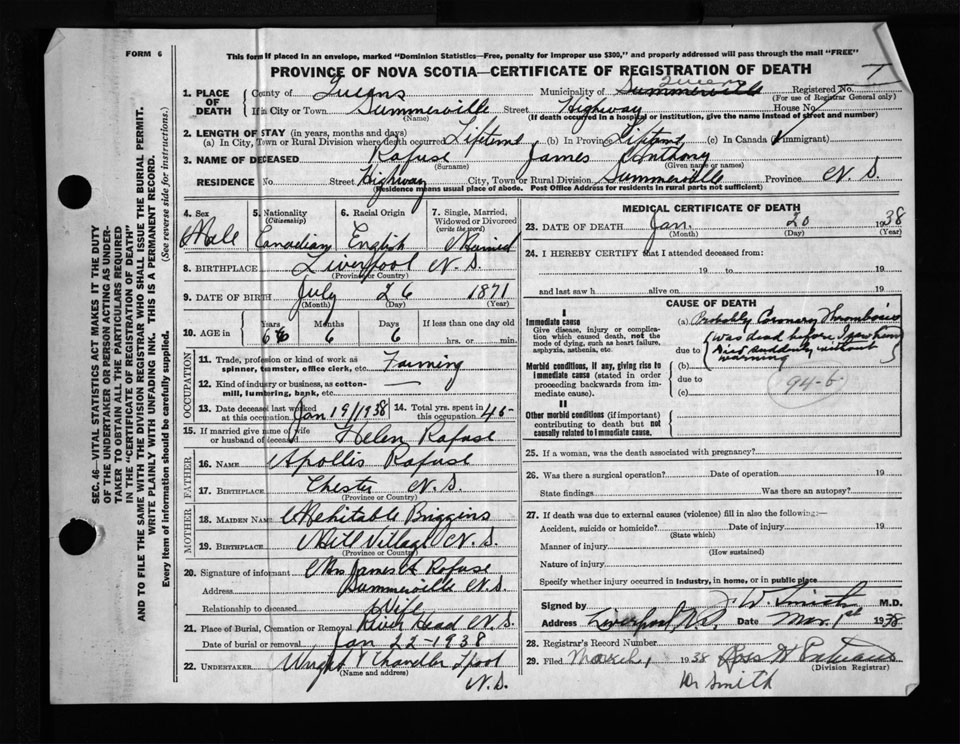 FORM 6
This form if placed in an envelope, marked "Dominion Statistics—Free, penalty for improper use $300," and properly addressed will pass through the mail "FREE"
PROVINCE OF NOVA SCOTIA—CERTIFICATE OF REGISTRATION OF DEATH
1. PLACE OF DEATH
County of Queens Municipality of Summerville Queens Registered No.
(For use of Registrar General only)
If in City or Town Summerville Street Highway House No.
(Name) (If death occurred in a hospital or institution, give the name instead of street and number)
2. LENGTH OF STAY (in years, months and days)
(a) In City, Town or Rural Division where death occurred Lifetime (b) In Province Lifetime (c) In Canada (if immigrant)
3. NAME OF DECEASED Rafuse James Anthony
(Surname) (Given name or names)
RESIDENCE No. Street Highway City, Town or Rural Division Summerville Province N.S.
(Residence means usual place of abode. Post Office Address for residents in rural parts not sufficient)
4. Sex Male
5. Nationality (Citizenship) Canadian
6. Racial Origin English
7. Single, Married, Widowed or Divorced (write the word) Married
8. BIRTHPLACE Liverpool N.S.
(Province or Country)
9. DATE OF BIRTH July 26 1871
(Month) (Day) (Year)
10. AGE in Years 66 Months 6 Days 6 If less than one day old
hrs. or min.
OCCUPATION
11. Trade, profession or kind of work as spinner, teamster, office clerk, etc. Farming
12. Kind of industry or business, as cotton-mill, lumbering, bank, etc. —
13. Date deceased last worked at this occupation Jan 19/1938
14. Total yrs. spent in this occupation 46-
15. If married give name of wife or husband of deceased Helen Rafuse
FATHER
16. NAME Apollis Rafuse
17. BIRTHPLACE Chester N.S.
(Province or Country)
MOTHER
18. MAIDEN NAME Mehitable Briggins
19. BIRTHPLACE Mill Village N.S.
(Province or Country)
20. Signature of informant Mrs James A Rafuse
Address Summerville N.S.
Relationship to deceased Wife
21. Place of Burial, Cremation or Removal River Head N.S.
Date of burial or removal Jan 22-1938
22. UNDERTAKER Wright & Chandler Lpool
(Name and address)
N.S.
MEDICAL CERTIFICATE OF DEATH
23. DATE OF DEATH Jan. 20 1938
(Month) (Day) (Year)
24. I HEREBY CERTIFY that I attended deceased from:
19 to 19
and last saw h alive on 19
CAUSE OF DEATH
I
Immediate cause
Give disease, injury or complication which caused death, not the mode of dying, such as heart failure, asphyxia, asthenia, etc.
(a) Probably Coronary Thrombosis
(was dead before I saw him
due to died suddenly without
warning)
Morbid conditions, if any, giving rise to immediate cause (stated in order proceeding backwards from immediate cause).
(b)
due to
(c)
94-b
II
Other morbid conditions (if important) contributing to death but not causally related to immediate cause.
25. If a woman, was the death associated with pregnancy?
26. Was there a surgical operation? Date of operation 19
State findings Was there an autopsy?
27. If death was due to external causes (violence) fill in also the following:—
Accident, suicide or homicide? Date of injury 19
(State which)
Manner of injury
(How sustained)
Nature of injury
Specify whether injury occurred in Industry, in home, or in public place
Signed by J. W. Smith M.D.
Address Liverpool N.S. Date Mar. 1st 1938
28. Registrar's Record Number
29. Filed March 1 1938 Ross H
(Division Registrar)
Dr Smith
SEC. 46—VITAL STATISTICS ACT MAKES IT THE DUTY
OF THE UNDERTAKER OR PERSON ACTING AS UNDER-
TAKER TO OBTAIN ALL THE PARTICULARS REQUIRED
IN THE "CERTIFICATE OF REGISTRATION OF DEATH"
AND TO FILE THE SAME WITH THE DIVISION REGISTRAR WHO SHALL ISSUE THE BURIAL PERMIT.
WRITE PLAINLY WITH UNFADING INK. THIS IS A PERMANENT RECORD.
Every item of information should be carefully supplied. (See reverse side for instructions.)